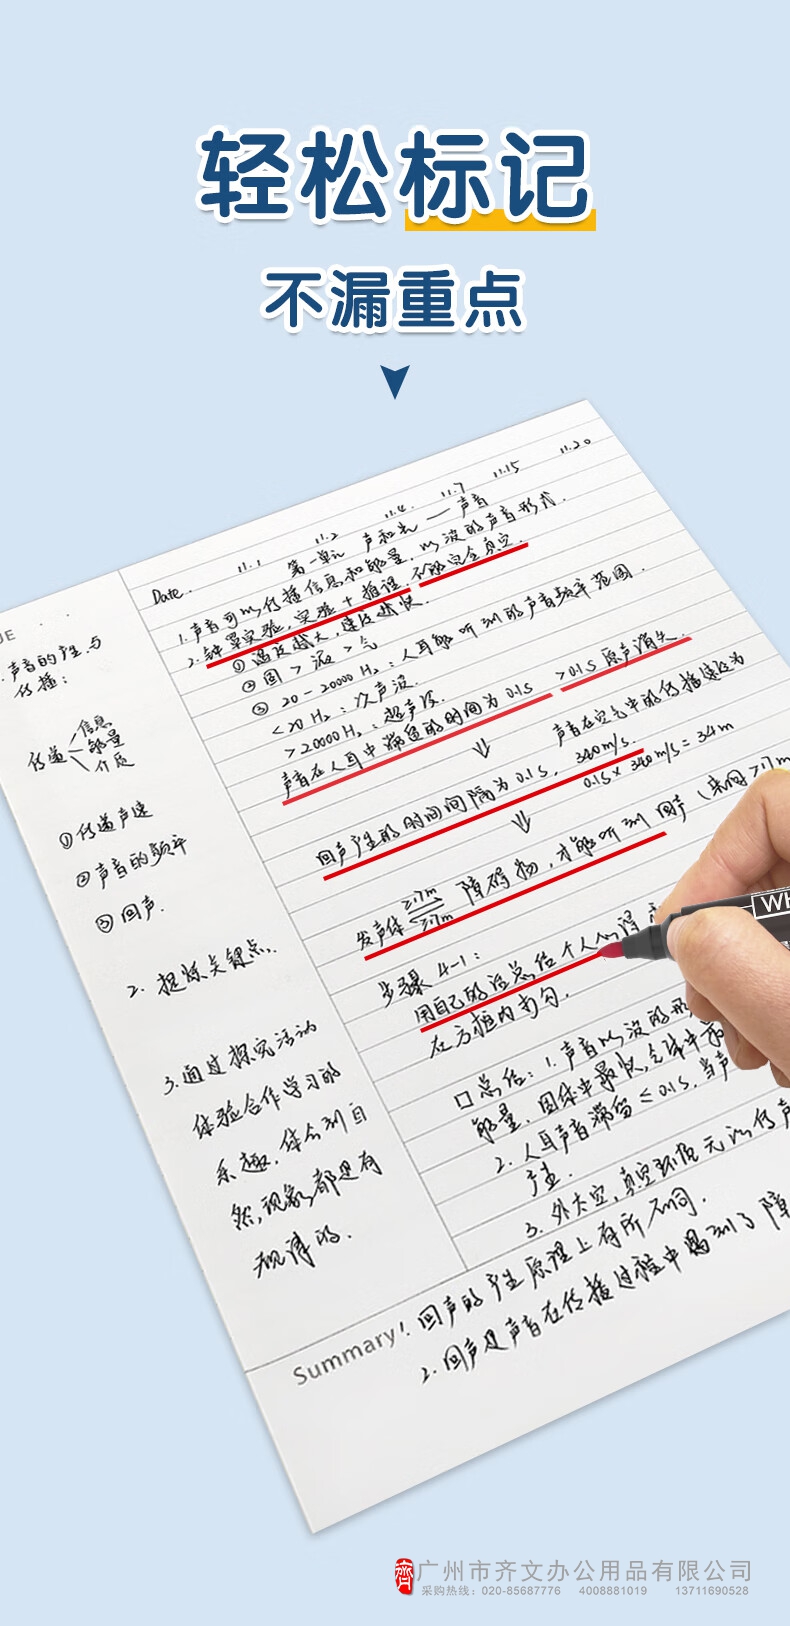 轻松标记
不漏重点
11.1 11.2 11.4 11.7 11.15 11.20
Date.
第一单元 声和光 — 声音
1.声音可以传播信息和能量,以波的声音形式.
2.钟罩实验,实验+推理,不能完全真空.
①温度越大,速度越快.
②固>液>气
③20-20000Hz:人耳能听到的声音频率范围.
<20Hz:次声波.
>20000Hz:超声波.
声音在人耳中滞留的时间为0.1s >0.1s原声消失
⇓ 声音在空气中的传播速度为
340m/s.
回声产生的时间间隔为0.1s, 0.1s×340m/s=34m
⇓
发声体 ≥17m ≥17m 障碍物,才能听到回声(来回≥17m
步骤4-1:
用自己的话总结个人心得
在方框内句句.
口总结:1.声音以波的形
能量,固体中最快,气体中最
2.人耳声音滞留≤0.1s,当声
产生.
3.外太空,真空环境无以传声
UE
.声音的产生与
传播:
传递 信息
能量
介质
①传递声速
②声音的频率
③回声.
2.提炼关键点.
3.通过探究活动
体验合作学习的
乐趣,体会到自
然,现象都是有
规律的.
Summary! 回声的产生原理上有所不同.
2.回声是声音在传播过程中遇到了障
WH
齊 广州市齐文办公用品有限公司
采购热线:020-85687776 4008881019 13711690528